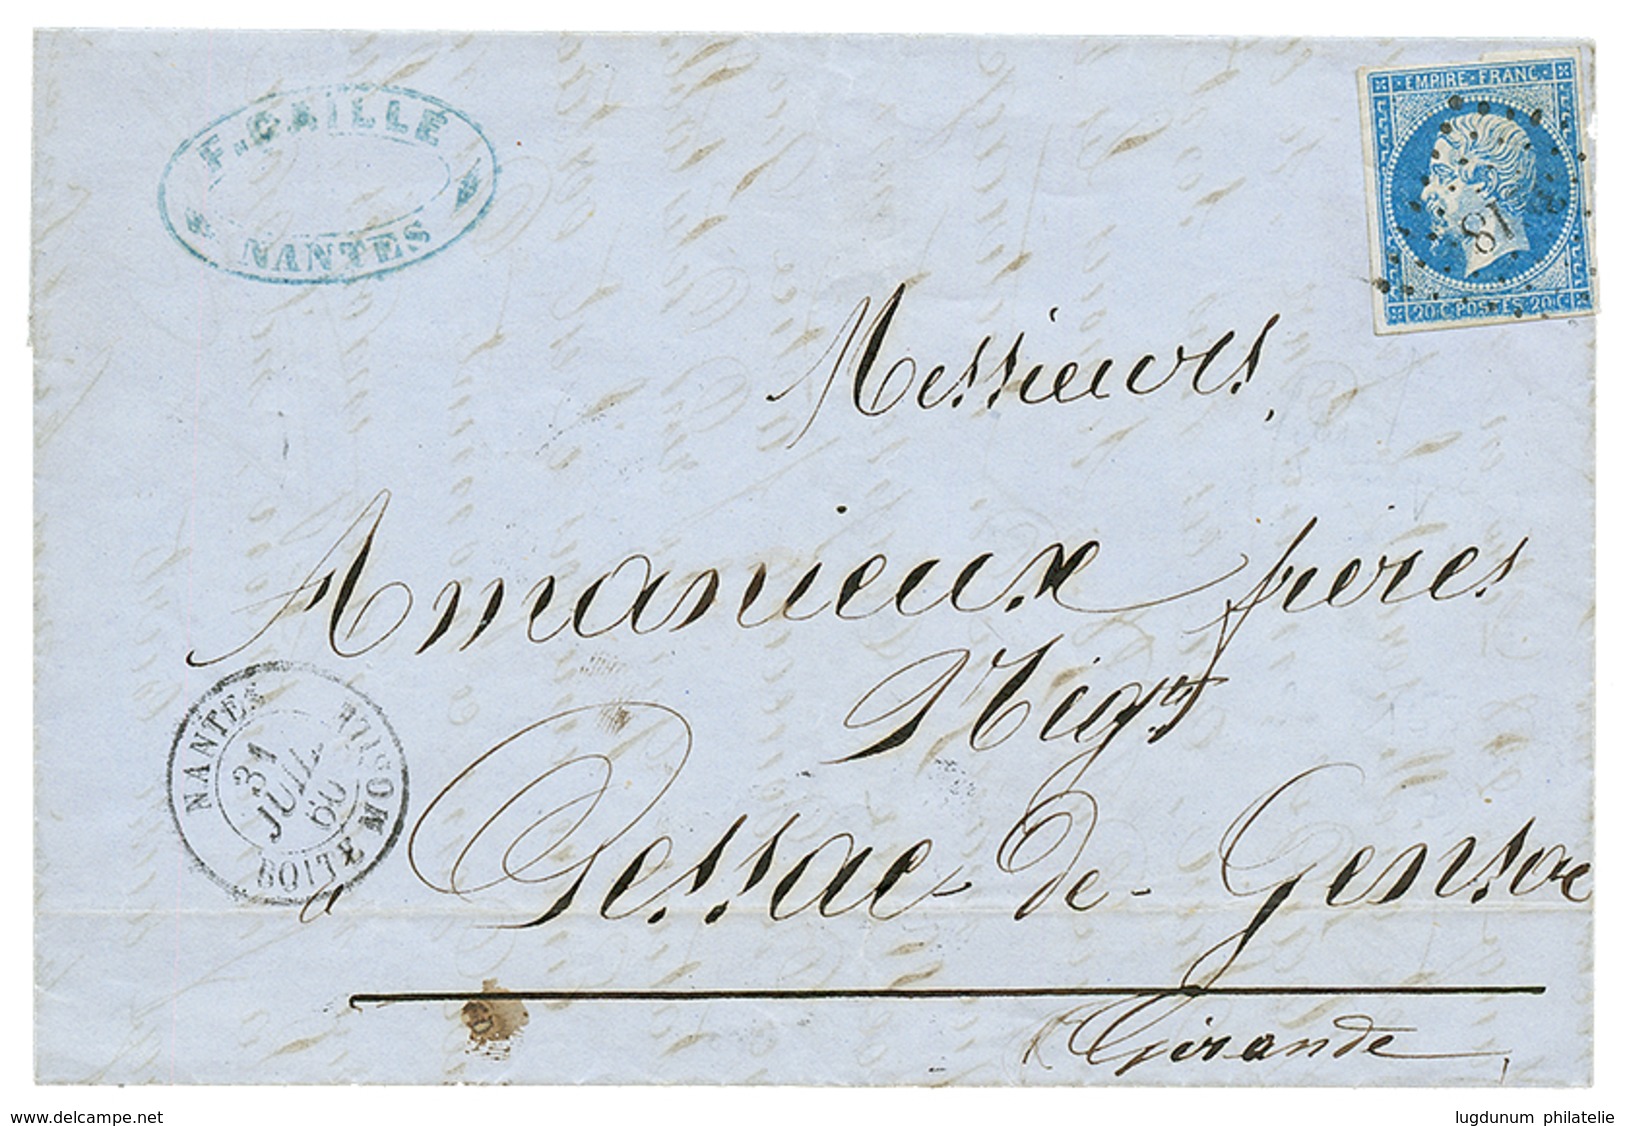 F. CAILLE
NANTES
EMPIRE FRANC.
20 C POSTES 20 C
Messieurs
Amanieux frères
Nig^ts
NANTES
31
JUIL
60
BOITE MOBILE
à Pessac-de-Gensac
Gironde
www.delcampe.net
lugdunum philatelie